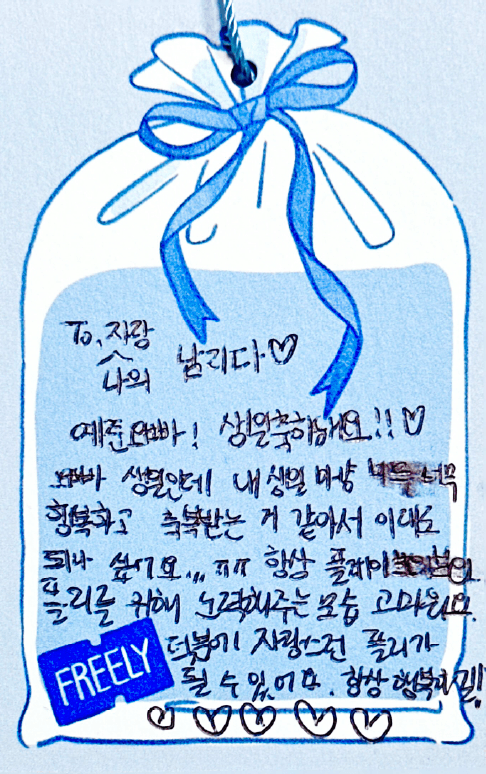 To. 자랑
나의 남리다♡
예준오빠! 생일축하해요!!♡
오빠 생일인데 내 생일 마냥 너무
행복하고 축복받는 거 같아서 이대로
되나 싶기요... ㅠㅠ 항상 플레이
플리를 위해 노력해주는 모습 고마워요.
FREELY
덕분에 자랑스런 플리가
될 수 있어요. 항상 행복하길!!
♡♡♡♡♡